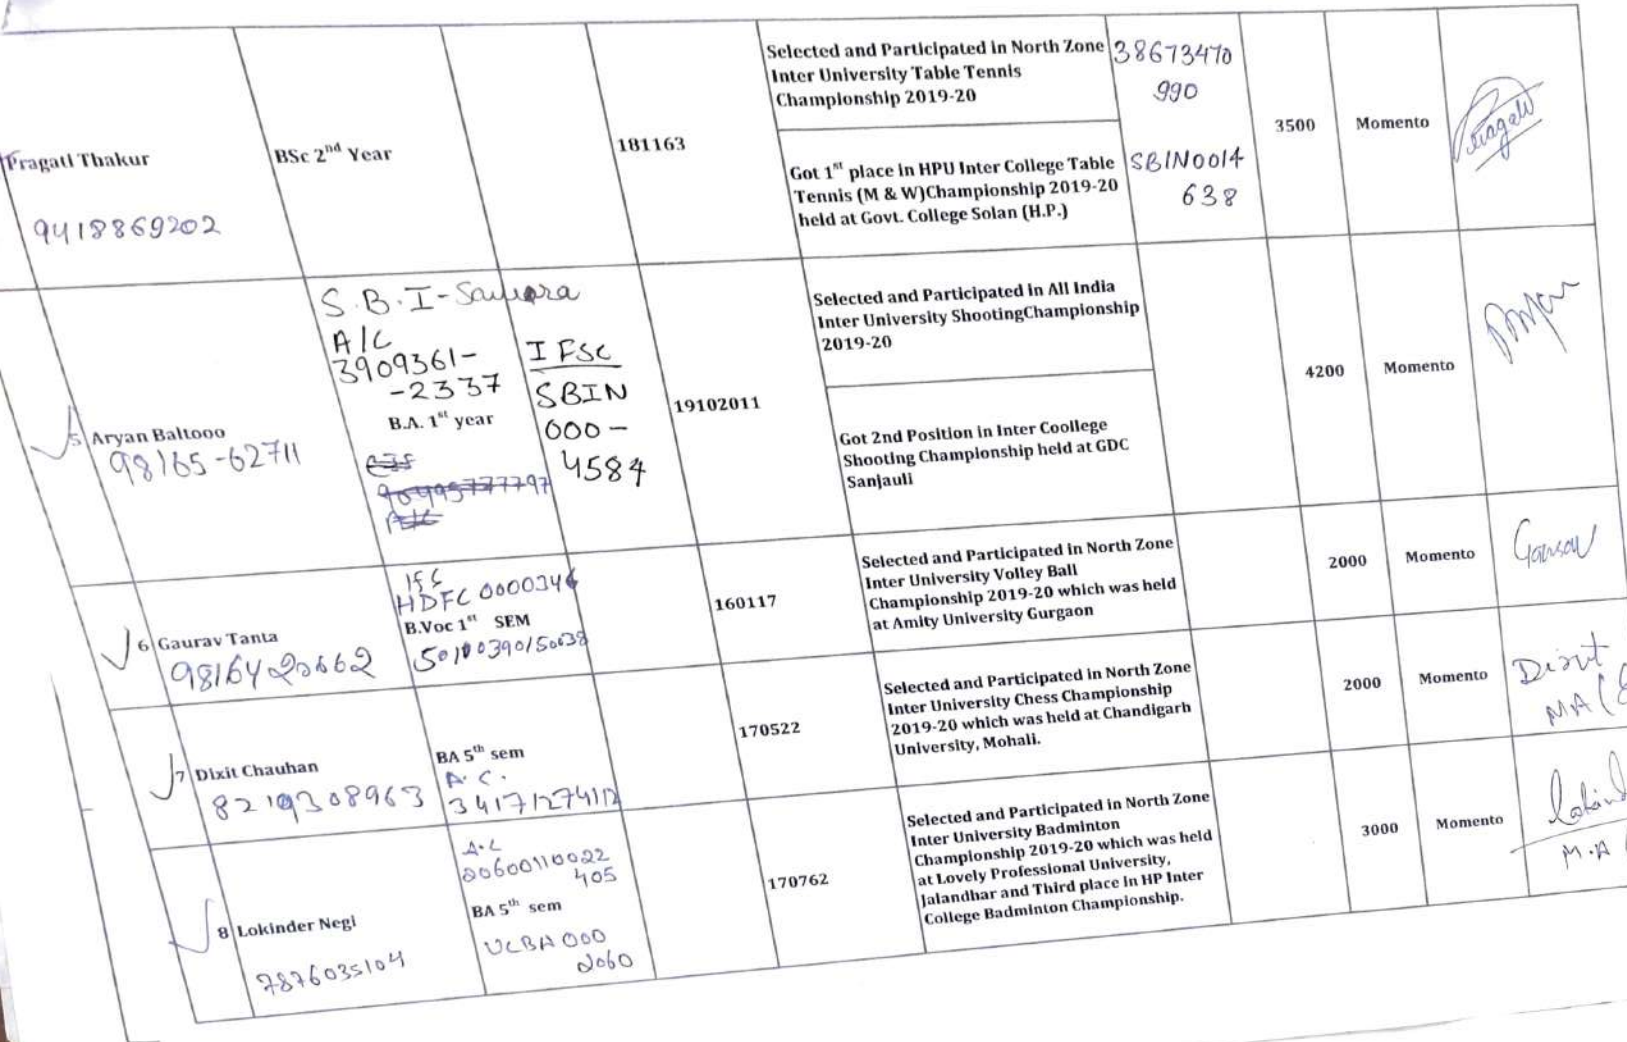 Pragati Thakur
9418869202
BSc 2nd Year
181163
Selected and Participated in North Zone
Inter University Table Tennis
Championship 2019-20
Got 1st place in HPU Inter College Table
Tennis (M & W)Championship 2019-20
held at Govt. College Solan (H.P.)
38673470
990
SBIN0014
638
3500
Momento
Pragati
5 Aryan Baltooo
98165-62711
S.B.I-
A/C
3909361-
-2337
B.A. 1st year
IFSC
SBIN
000-
4584
19102011
Selected and Participated in All India
Inter University ShootingChampionship
2019-20
Got 2nd Position in Inter Coollege
Shooting Championship held at GDC
Sanjauli
4200
Momento
6 Gaurav Tanta
9816420662
HDFC0000346
B.Voc 1st SEM
50100390150038
160117
Selected and Participated in North Zone
Inter University Volley Ball
Championship 2019-20 which was held
at Amity University Gurgaon
2000
Momento
7 Dixit Chauhan
8219308963
BA 5th sem
A.C.
34171274112
170522
Selected and Participated in North Zone
Inter University Chess Championship
2019-20 which was held at Chandigarh
University, Mohali.
2000
Momento
MA
8 Lokinder Negi
7876035104
A.C
20600110022
405
BA 5th sem
UCBA000
2060
170762
Selected and Participated in North Zone
Inter University Badminton
Championship 2019-20 which was held
at Lovely Professional University,
Jalandhar and Third place in HP Inter
College Badminton Championship.
3000
Momento
M.A